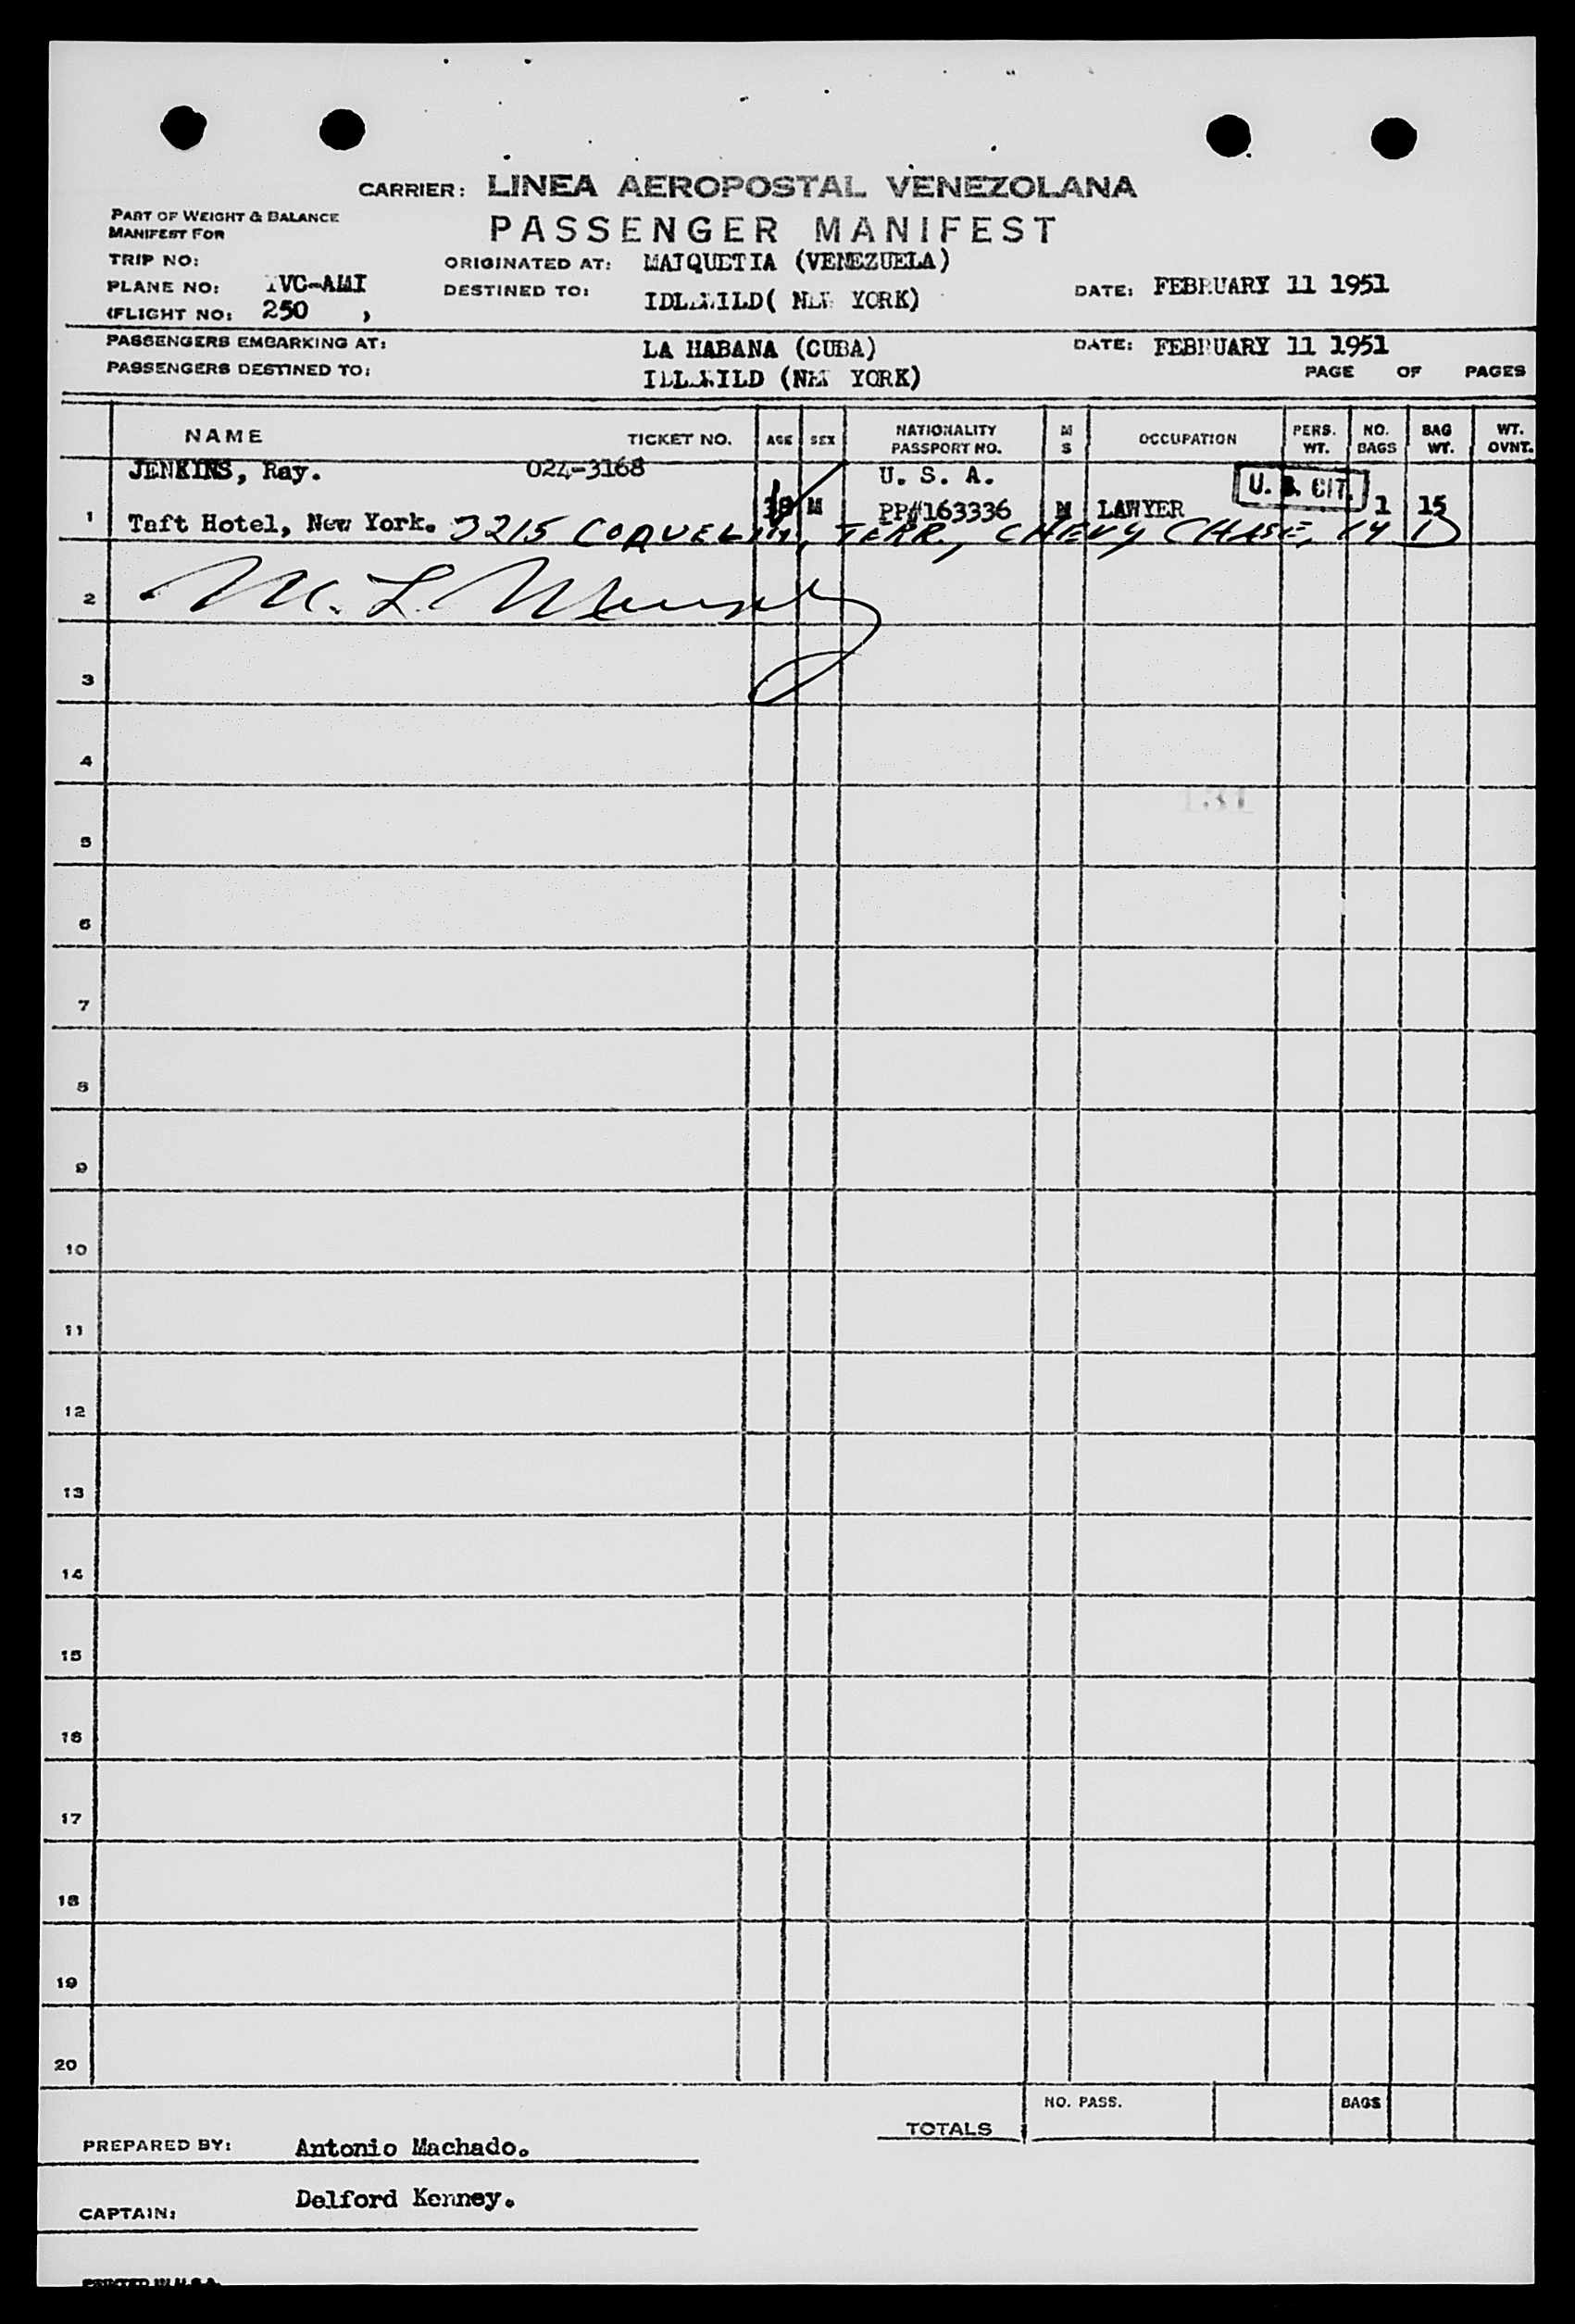 CARRIER: LINEA AEROPOSTAL VENEZOLANA
PART OF WEIGHT & BALANCE
MANIFEST FOR
PASSENGER MANIFEST
TRIP NO:
ORIGINATED AT: MAIQUETIA (VENEZUELA)
PLANE NO: YVC-AMI
DESTINED TO: IDLEWILD( NEW YORK)
DATE: FEBRUARY 11 1951
(FLIGHT NO: 250 ,
PASSENGERS EMBARKING AT: LA HABANA (CUBA) DATE: FEBRUARY 11 1951
PASSENGERS DESTINED TO: IDLEWILD (NEW YORK)
PAGE OF PAGES
NAME TICKET NO. AGE SEX NATIONALITY PASSPORT NO. M S OCCUPATION PERS. WT. NO. BAGS BAG WT. WT. OVNT.
JENKINS, Ray. 024-3168 U. S. A.
U. S. CIT.
1 M PP#163336 M LAWYER 1 15
Taft Hotel, New York. 3215 COQUELIN, TERR., CHEVY CHASE, 14 D
2 M. L. Murphy
3
4
131
5
6
7
8
9
10
11
12
13
14
15
16
17
18
19
20
NO. PASS. BAGS
TOTALS
PREPARED BY: Antonio Machado.
CAPTAIN: Delford Kenney.
PRINTED IN U.S.A.